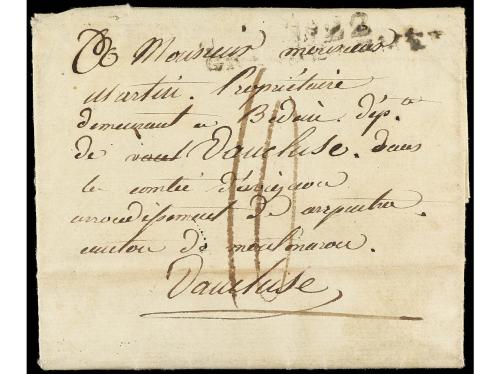 A Monsieur monsieur
Martin. Propriétaire
demeurant a Bedoin dépt
de vaucl Vaucluse. dans
le comté d'avignon
arrondissement de carpentra
canton de mormoiron.
Vaucluse